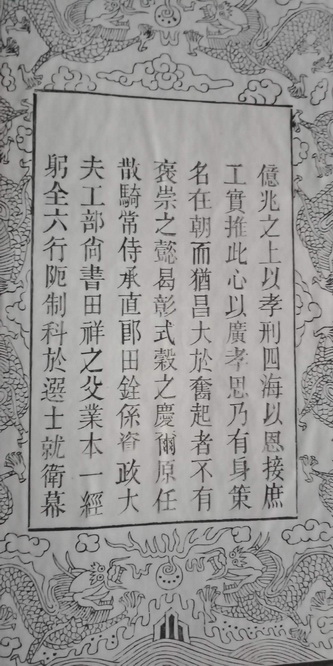 億兆之上以孝刑四海以恩接庶
工實推此心以廣孝思乃有身策
名在朝而猶昌大於奮起者不有
褒崇之懿曷彰式穀之慶爾原任
散騎常侍承直郎田銓係資政大
夫工部尚書田祥之父業本一經
躬全六行阨制科於選士就衛幕